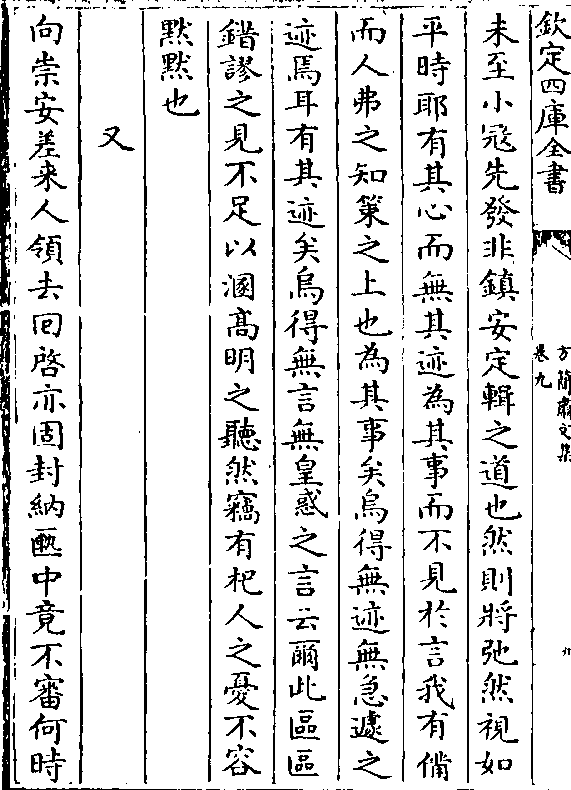 欽定四庫全書
方簡肅文集
卷九
九
未至小冦先發非鎮安定輯之道也然則將弛然視如
平時耶有其心而無其迹為其事而不見於言我有備
而人弗之知策之上也為其事矣烏得無迹無急遽之
迹焉耳有其迹矣烏得無言無皇惑之言云爾此區區
錯謬之見不足以溷髙明之聽然竊有杞人之憂不容
黙黙也
又
向崇安差来人領去回啓亦固封納匭中竟不審何時